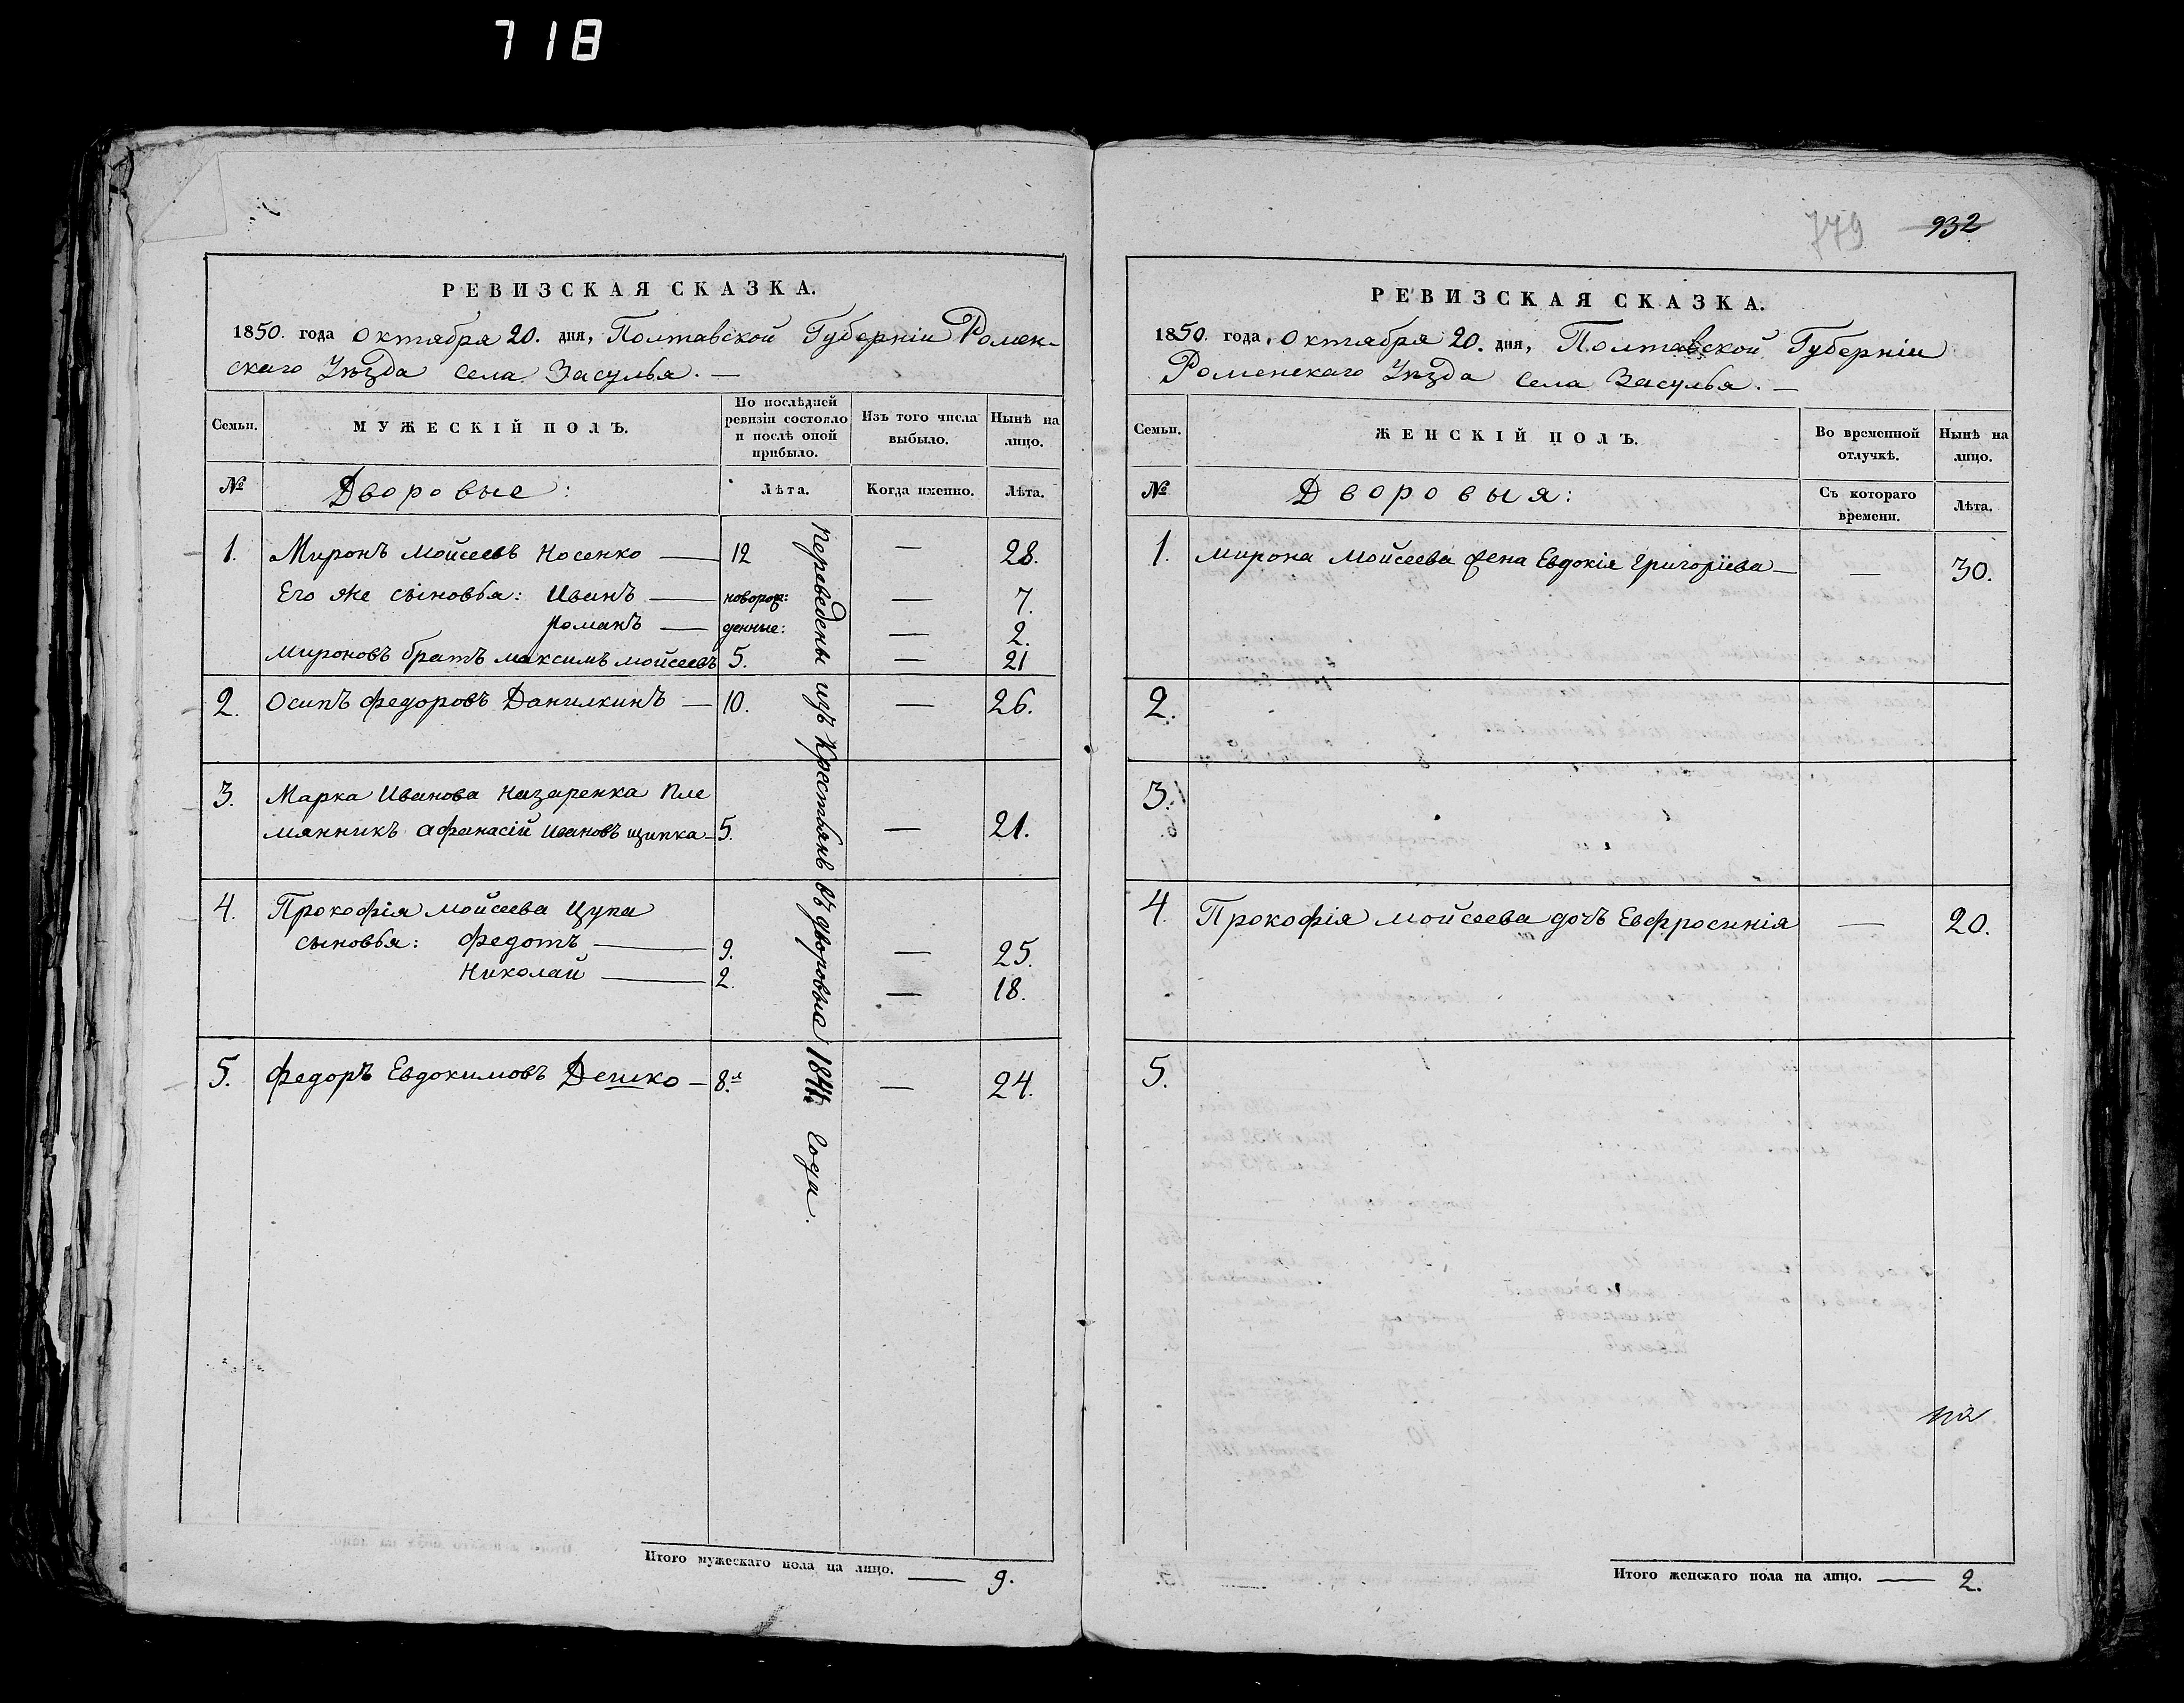 718
РЕВИЗСКАЯ СКАЗКА.
1850. года Октября 20. дня, Полтавской Губерніи Ромен-
скаго Уѣзда села Засулья. —
Семьи.
МУЖЕСКІЙ ПОЛЪ.
По послѣдней ревизіи состояло и послѣ оной прибыло.
Изъ того числа выбыло.
Нынѣ на лицо.
№ Дворовые: Лѣта. Когда именно. Лѣта.
1. Миронъ Мойсеевъ Носенко — 12 — 28.
Его же сыновья: Иванъ — новорож: — 7.
Романъ — денные: — 2.
Мироновъ братъ Максимъ Мойсеевъ 5. — 21
2. Осипъ Федоровъ Данилкинъ — 10. — 26.
3. Марка Иванова Назаренка пле
мянникъ Афанасій Ивановъ Щипка — 5. — 21.
4. Прокофія Мойсеева Цупа
сыновья: Федотъ — 9. — 25.
Николай — 2. — 18.
5. Федоръ Евдокимовъ Дешко — 8.л — 24.
Переведены изъ Крестьянъ въ дворовыя 1844. года.
Итого мужескаго пола на лицо. — 9.
779 932
РЕВИЗСКАЯ СКАЗКА.
1850. года, Октября 20. дня, Полтавской Губерніи
Роменскаго Уѣзда села Засулья. —
Семьи.
ЖЕНСКІЙ ПОЛЪ.
Во временной отлучкѣ.
Нынѣ на лицо.
№ Дворовыя: Съ котораго времени. Лѣта.
1. Мирона Мойсеева жена Евдокія Григоріева — — 30.
2.
3.
4. Прокофія Мойсеева дочь Евфросинія — 20.
5.
Итого женскаго пола на лицо. — 2.